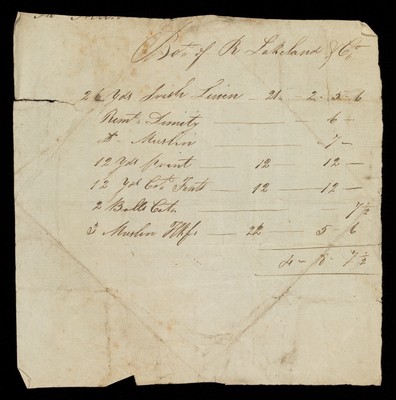 Bot. of R Lakeland & Co
26 Yds Irish Linen — 21 — 2 " 5 " 6
Remt. Dimity — " 6 "
Dt. Muslin — " 7 —
12 Yds print — 12 — 12 —
12 Yd Cotn — 12 — 12 —
2 Balls Cotn — 7½
3 Muslin Hkfs — 22 — 5 " 6
4 — 8 " 7½